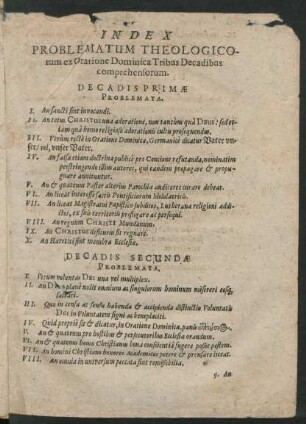 INDEX
PROBLEMATUM THEOLOGICO-
rum ex Oratione Dominica Tribus Decadibus
comprehensorum.
DECADIS PRIMÆ
PROBLEMATA.
I. An sancti sint invocandi.
II. An totus CHRISTUS una adoratione, non tantùm quà DEUS: sed et-
iam quà homo religioso adorationis cultu prosequendus.
III. Utrum rectè in Oratione Dominica, Germanicè dicatur Vater un-
ser, vel, unser Vater.
IV. An falsa etiam doctrina publicè pro Concione refutanda, nominatim
perstringendo illius autores, qui eandem propagare &
pugnare annituntur.
V. An & quatenus Pastor alterius Parochiæ auditores curare debeat.
VI. An liceat interesse sacris Pontificiorum Idololatricis.
VII. An liceat Magistratui Papistico subditos, Lutheranæ religioni addi-
ctos, ex suis territoriis profligare ac persequi.
VIII. An regnum CHRISTI Mundanum.
IX. An CHRISTUS desierit sit regnare.
X. An Hæretici sint membra Ecclesiæ.
DECADIS SECUNDÆ
PROBLEMATA.
I. Utrum voluntas DEI una vel multiplex.
II. An DEUS planè nolit omnium ac singulorum hominum misereri eosq;
salvari.
III. Quo in sensu ac sensu habenda & accipienda distinctio Voluntatis
DEI in Voluntatem signi ac beneplaciti.
IV. Quid propriè sit & dicatur, in Oratione Dominica, panis
V. An & quatenus pro hostibus & persecutoribus Ecclesiæ orandum.
VI. An & quatenus homo Christianus bona conscientia fugere possit pestem.
VII. An homini Christiano honores Academicos petere & prensare liceat.
VIII. An omnia in universum peccata sint remissibilia.
9. An